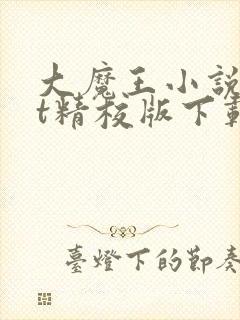 大魔王小說
t精校版下載
臺燈下的節奏